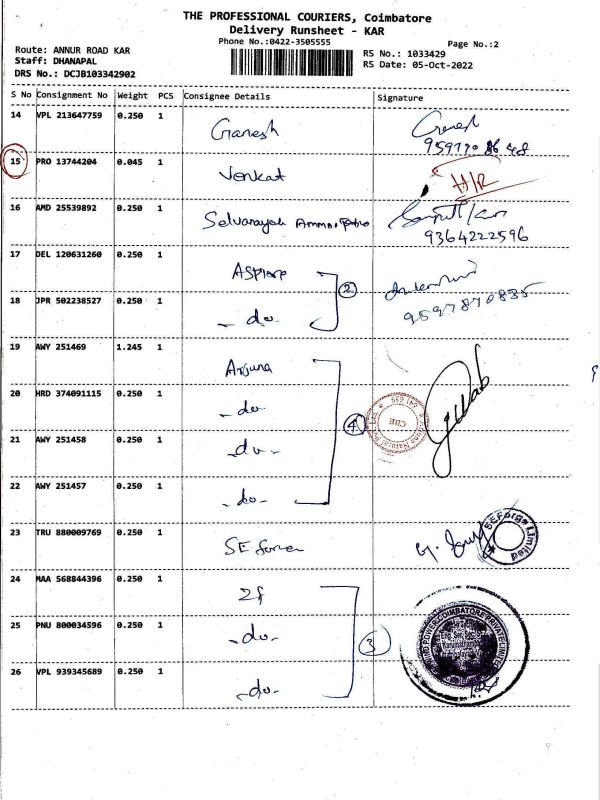 THE PROFESSIONAL COURIERS, Coimbatore
Delivery Runsheet - KAR
Phone No.:0422-3505555
Page No.:2
Route: ANNUR ROAD KAR
RS No.: 1033429
Staff: DHANAPAL
RS Date: 05-Oct-2022
DRS No.: DCJB103342902
S No Consignment No Weight PCS Consignee Details Signature
14 VPL 213647759 0.250 1 Ganesh Ganesh
15 PRO 13744204 0.045 1 Venkat H/R
16 AMD 25539892 0.250 1 Selvanayak
9364222596
17 DEL 120631260 0.250 1 ASpire 2
18 JPR 502238527 0.250 1 -do- 9597870835
19 AWY 251469 1.245 1 Arjuna
20 HRD 374091115 0.250 1 -do- 4
21 AWY 251458 0.250 1 -do-
22 AWY 251457 0.250 1 -do-
23 TRU 880009769 0.250 1 SE Forge SEForge Limited
24 MAA 568844396 0.250 1 2f
25 PNU 800034596 0.250 1 -do- 3
26 VPL 939345689 0.250 1 -do-